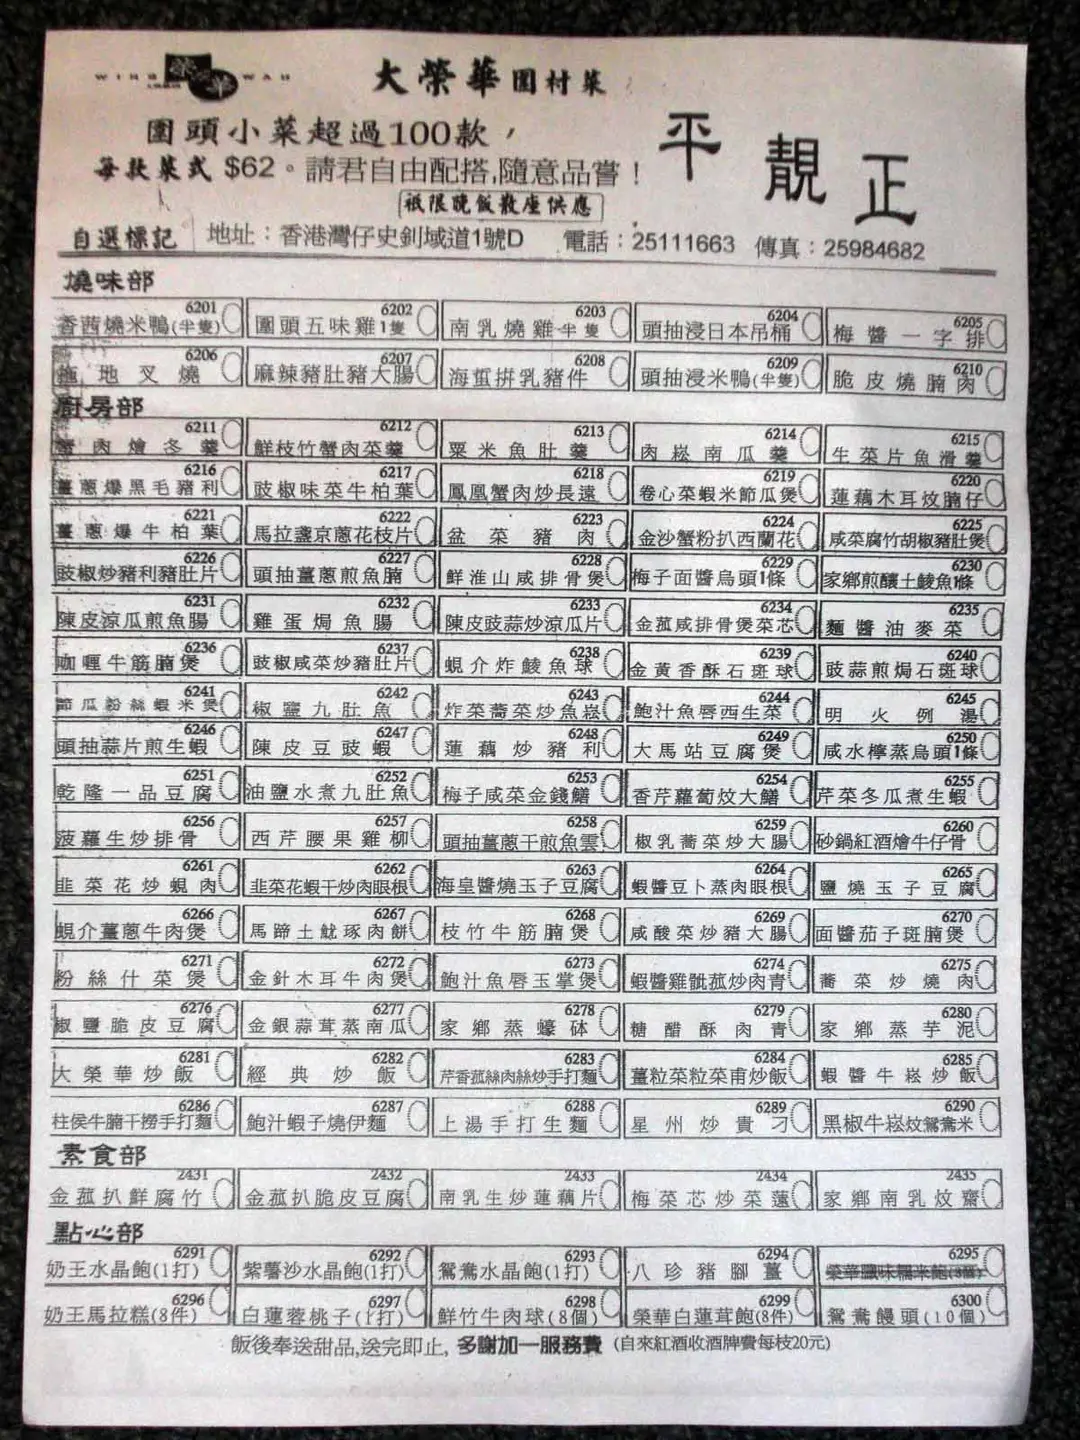 WING WAH
大榮華圍村菜
圍頭小菜超過100款，
每款菜式 $62。請君自由配搭,隨意品嘗！
平靚正
祇限晚飯散座供應
自選標記 地址：香港灣仔史釗域道1號D 電話：25111663 傳真：25984682
燒味部
6201 6202 6203 6204 6205
香茜燒米鴨(半隻) 圍頭五味雞1隻 南乳燒雞半隻 頭抽浸日本吊桶 梅醬一字排
6206 6207 6208 6209 6210
拖地叉燒 麻辣豬肚豬大腸 海蜇拼乳豬件 頭抽浸米鴨(半隻) 脆皮燒腩肉
廚房部
6211 6212 6213 6214 6215
蟹肉燴冬羹 鮮枝竹蟹肉菜羹 粟米魚肚羹 肉崧南瓜羹 生菜片魚滑羹
6216 6217 6218 6219 6220
薑蔥爆黑毛豬利 豉椒味菜牛柏葉 鳳凰蟹肉炒長遠 卷心菜蝦米節瓜煲 蓮藕木耳炆腩仔
6221 6222 6223 6224 6225
薑蔥爆牛柏葉 馬拉盞京蔥花枝片 盆菜豬肉 金沙蟹粉扒西蘭花 咸菜腐竹胡椒豬肚煲
6226 6227 6228 6229 6230
豉椒炒豬利豬肚片 頭抽薑蔥煎魚腩 鮮淮山咸排骨煲 梅子面醬烏頭1條 家鄉煎釀土鯪魚1條
6231 6232 6233 6234 6235
陳皮涼瓜煎魚腸 雞蛋焗魚腸 陳皮豉蒜炒涼瓜片 金菰咸排骨煲菜芯 麵醬油麥菜
6236 6237 6238 6239 6240
咖喱牛筋腩煲 豉椒咸菜炒豬肚片 蜆介炸鯪魚球 金黃香酥石斑球 豉蒜煎焗石斑球
6241 6242 6243 6244 6245
節瓜粉絲蝦米煲 椒鹽九肚魚 炸菜蕎菜炒魚崧 鮑汁魚唇西生菜 明火例湯
6246 6247 6248 6249 6250
頭抽蒜片煎生蝦 陳皮豆豉蝦 蓮藕炒豬利 大馬站豆腐煲 咸水檸蒸烏頭1條
6251 6252 6253 6254 6255
乾隆一品豆腐 油鹽水煮九肚魚 梅子咸菜金錢鱔 香芹蘿蔔炆大鱔 芹菜冬瓜煮生蝦
6256 6257 6258 6259 6260
菠蘿生炒排骨 西芹腰果雞柳 頭抽薑蔥干煎魚雲 椒乳蕎菜炒大腸 砂鍋紅酒燴牛仔骨
6261 6262 6263 6264 6265
韭菜花炒蜆肉 韭菜花蝦干炒肉眼根 海皇醬燒玉子豆腐 蝦醬豆卜蒸肉眼根 鹽燒玉子豆腐
6266 6267 6268 6269 6270
蜆介薑蔥牛肉煲 馬蹄土魷琢肉餅 枝竹牛筋腩煲 咸酸菜炒豬大腸 面醬茄子斑腩煲
6271 6272 6273 6274 6275
粉絲什菜煲 金針木耳牛肉煲 鮑汁魚唇玉掌煲 蝦醬雞髀菰炒肉青 蕎菜炒燒肉
6276 6277 6278 6279 6280
椒鹽脆皮豆腐 金銀蒜茸蒸南瓜 家鄉蒸蠔砵 糖醋酥肉青 家鄉蒸芋泥
6281 6282 6283 6284 6285
大榮華炒飯 經典炒飯 芹香菰絲肉絲炒手打麵 薑粒菜粒菜甫炒飯 蝦醬牛崧炒飯
6286 6287 6288 6289 6290
柱侯牛腩干撈手打麵 鮑汁蝦子燒伊麵 上湯手打生麵 星州炒貴刁 黑椒牛崧炆鴛鴦米
素食部
2431 2432 2433 2434 2435
金菰扒鮮腐竹 金菰扒脆皮豆腐 南乳生炒蓮藕片 梅菜芯炒菜蓮 家鄉南乳炆齋
點心部
6291 6292 6293 6294 6295
奶王水晶飽(1打) 紫薯沙水晶飽(1打) 鴛鴦水晶飽(1打) 八珍豬腳薑 榮華臘味糯米飽(3個)
6296 6297 6298 6299 6300
奶王馬拉糕(8件) 白蓮蓉桃子(1打) 鮮竹牛肉球(8個) 榮華白蓮茸飽(8件) 鴛鴦饅頭(10個)
飯後奉送甜品,送完即止, 多謝加一服務費 (自來紅酒收酒牌費每枝20元)